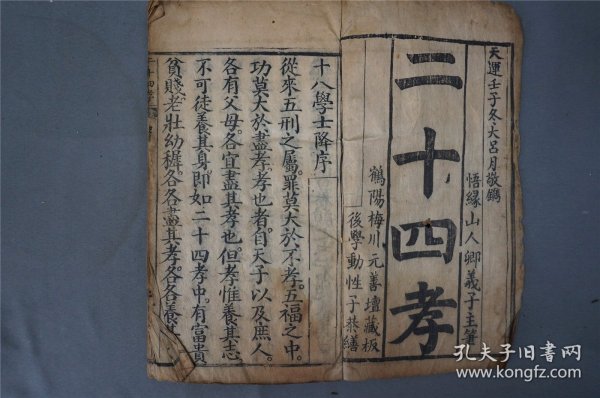 天運壬子冬大呂月敬鐫
悟緣山人卿義子主著
二十四孝
鶴陽梅川元善壇藏板
後學動性子恭繕
十八學士降序
從來五刑之屬。罪莫大於不孝。五福之中。
功莫大於盡孝。孝也者。自天子以及庶人。
各有父母。各宜盡其孝也。但孝惟養其志。
不可徒養其身。即如二十四孝中。有富貴
貧賤老壯幼穉。各各盡其孝。各各養其
孔夫子旧书网
www.kongfz.com